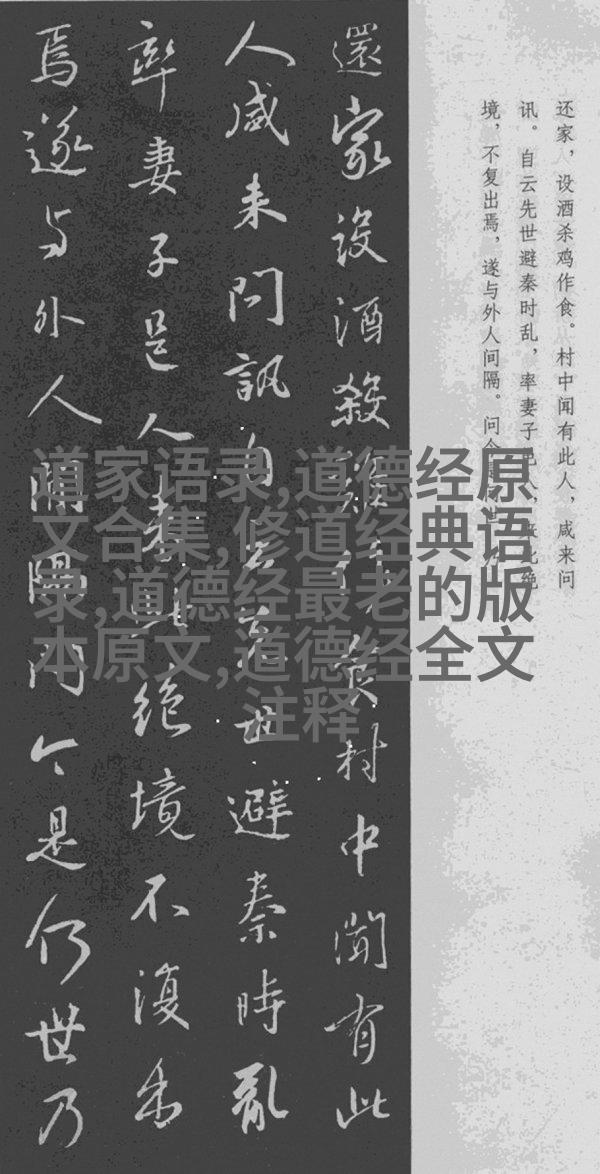 还家，设酒杀鸡作食。村中闻有此人，咸来问
讯。自云先世避秦时乱，率妻子邑人，来此绝
境，不复出焉，遂与外人间隔。问今是何世，乃
還家設酒殺雞作食村中聞有此
人咸来問訊自云先世避秦時亂
率妻子邑人来此絶境不復出
焉遂与外人間隔問今是何世乃
道家语录,道德经原
文合集,修道经典语
录,道德经最老的版
本原文,道德经全文
注释